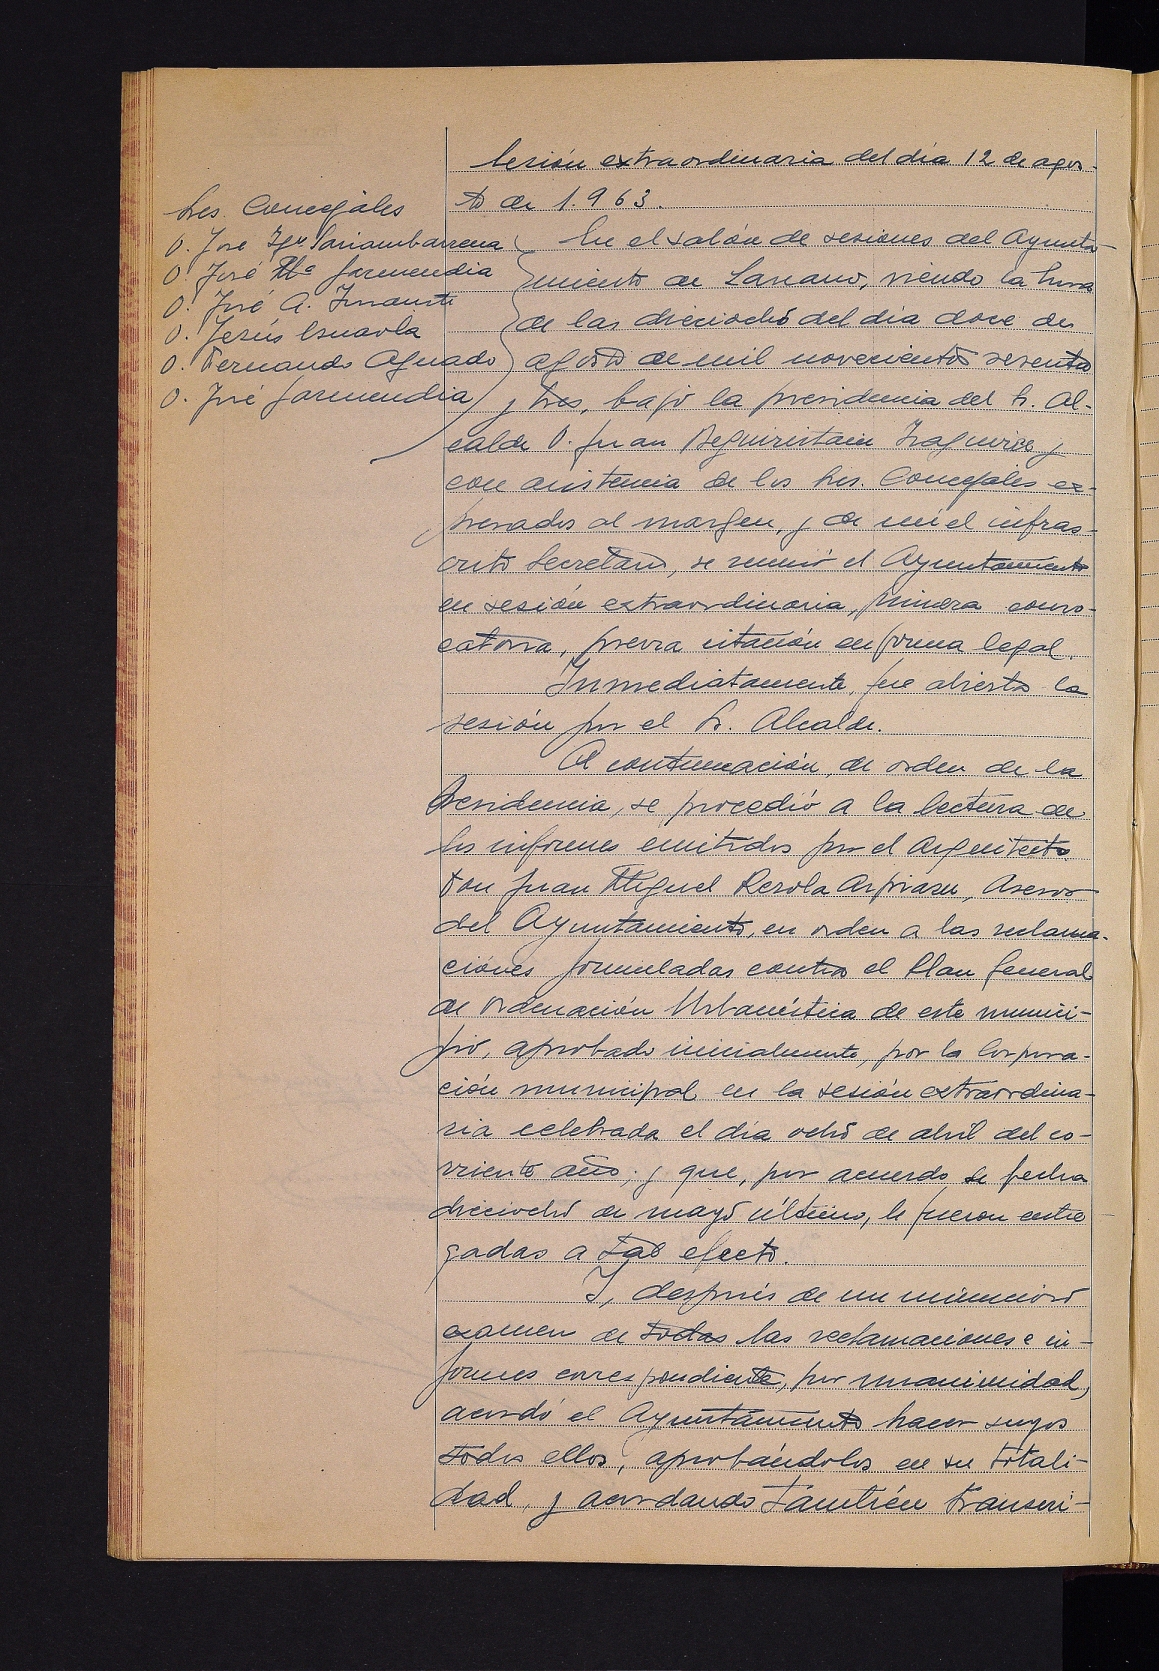 Sesión extraordinaria del día 12 de agos-
to de 1.963.
Sres. Concejales
D. José Igº Sariambarrena
D. José Mª Garmendia
D. José A.
D. Jesús Esnaola
D. Fernando Aguado
D. José Garmendia
En el salón de sesiones del Ayunta-
miento de Lazcano, siendo la hora
de las dieciocho del día doce de
agosto de mil novecientos sesenta
y tres, bajo la presidencia del Sr. Al-
calde D. Juan Beguiristain y
con asistencia de los Sres. Concejales ex-
presados al margen, y de mí el infras-
crito Secretario, se reunió el Ayuntamiento
en sesión extraordinaria, primera convo-
catoria, previa citación en forma legal.
Inmediatamente, fue abierta la
sesión por el Sr. Alcalde.
A continuación, de orden de la
Presidencia, se procedió a la lectura de
los informes emitidos por el Arquitecto
Don Juan Miguel Rezola Azpiazu, Asesor
del Ayuntamiento, en orden a las reclama-
ciones formuladas contra el Plan General
de Ordenación Urbanística de este munici-
pio, aprobado inicialmente, por la Corpora-
ción municipal en la sesión extraordina-
ria celebrada el día ocho de abril del co-
rriente año; y que, por acuerdo de fecha
dieciocho de mayo último, le fueron entre
gadas a tal efecto.
Y, después de un minucioso
examen de todas las reclamaciones e in-
formes correspondiente, por unanimidad,
acordó el Ayuntamiento hacer suyos
todos ellos, aprobándolos en su totali-
dad, y acordando también transcri-